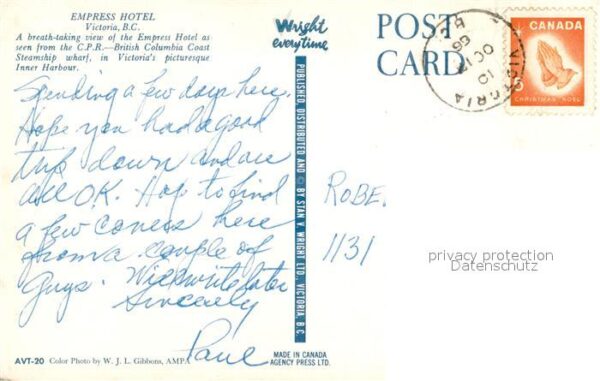 EMPRESS HOTEL
Victoria, B.C.
A breath-taking view of the Empress Hotel as
seen from the C.P.R.—British Columbia Coast
Steamship wharf, in Victoria's picturesque
Inner Harbour.
Spending a few days here.
Hope you had a good
trip down and are
all O.K. Hop to find
a few coness here
from a couple of
Guys. Will write later
Sincerely
Paul
AVT-20 Color Photo by W. J. L. Gibbons, AMPA
Wright
everytime
PUBLISHED, DISTRIBUTED AND © BY STAN V. WRIGHT LTD., VICTORIA, B.C.
MADE IN CANADA
AGENCY PRESS LTD.
POST
CARD
VICTORIA
10
CANADA
CHRISTMAS·NOËL
ROBE.
1131
privacy protection
Datenschutz